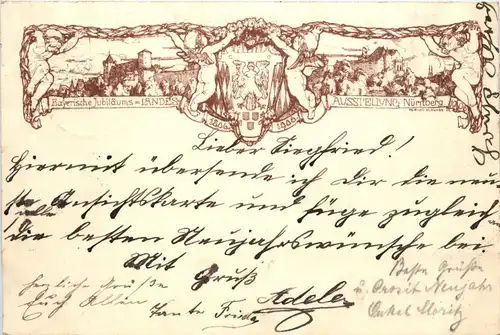 Bayerische Jubiläums-LANDES-AUSSTELLUNG Nürnberg
1806 1906
Lieber Siegfried!
Hiermit übersende ich Dir die neu-
ste Ansichtskarte und füge zugleich
die besten Neujahrswünsche bei
Mit Gruß
Adele
herzliche Grüße
Euch Allen
Tante Frida
Beste Grüße
u. Prosit Neujahr
Onkel Moritz